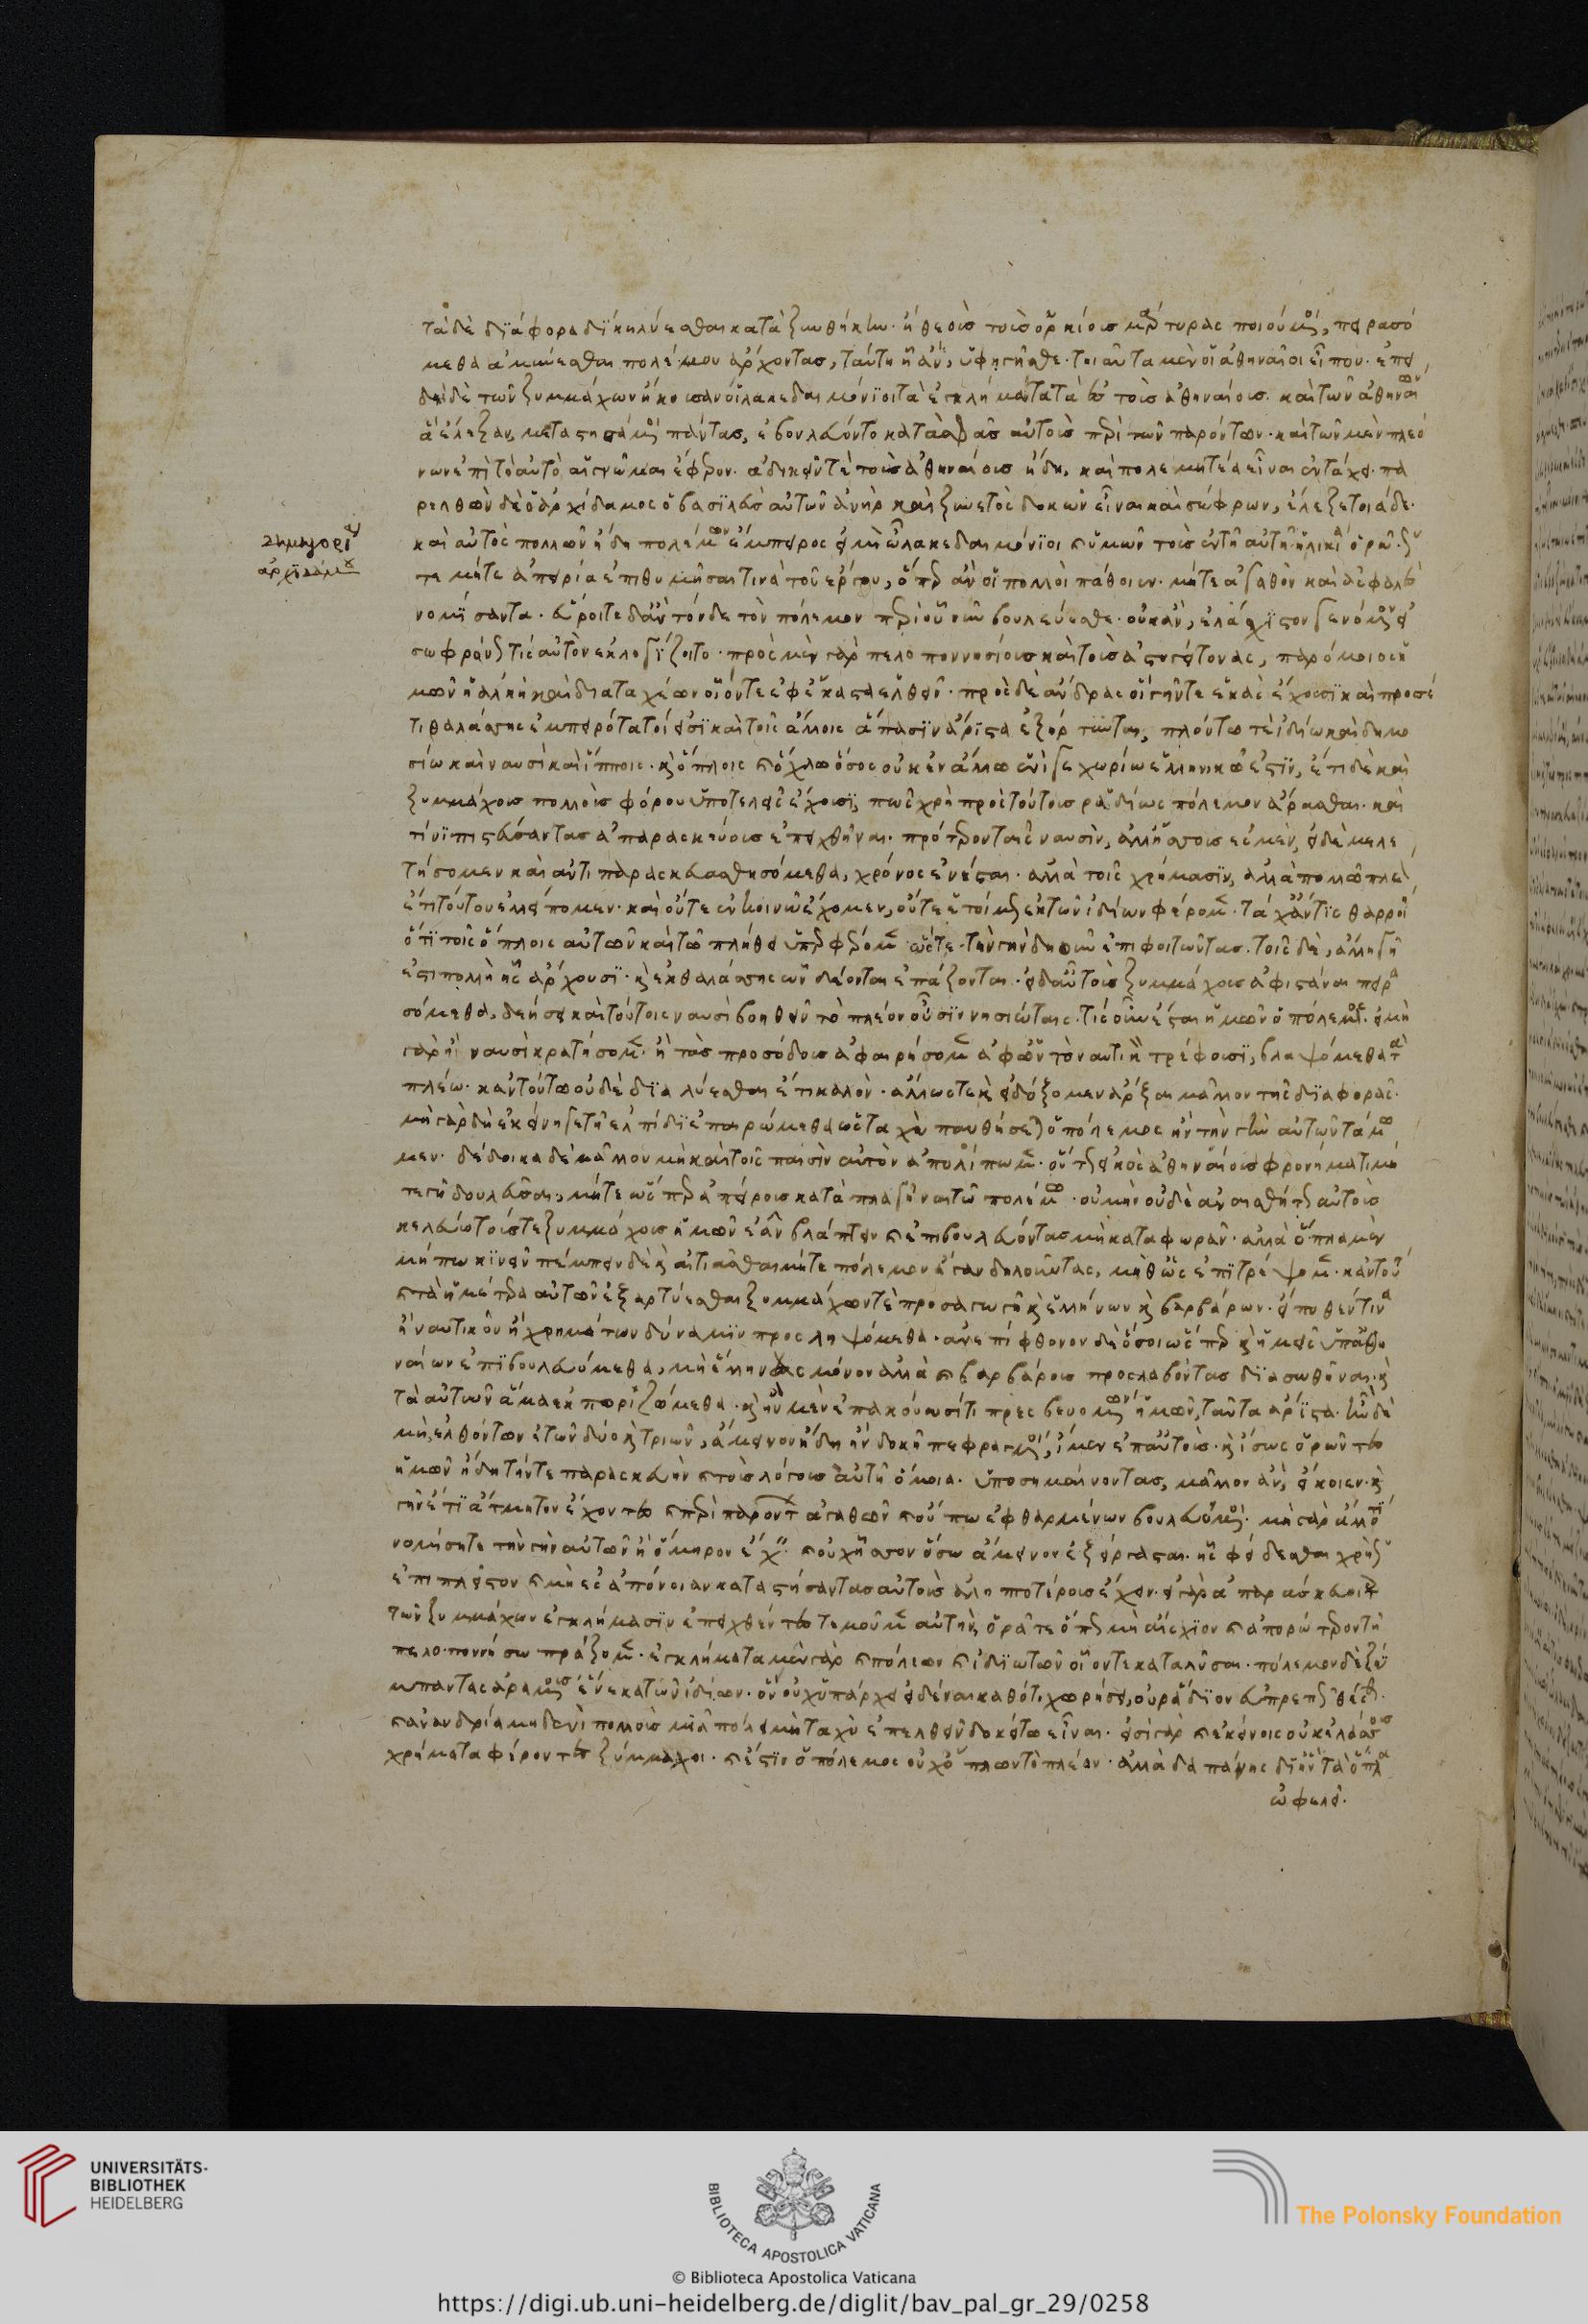 τὰ δὲ διάφορα δίκη λύεσθαι κατὰ ξυνθήκην· ἢ θεοὺς τοὺς ὁρκίους μάρτυρας ποιούμενοι, πειρασό
μεθα ἀμύνεσθαι πολέμου ἄρχοντας, ταύτη ἧ ἂν ὑφηγῆσθε· τοιαῦτα μὲν οἱ ἀθηναῖοι εἶπον· ἐπει
δὴ δὲ τῶν ξυμμάχων ἤκουσαν οἱ λακεδαιμόνιοι τὰ ἐγκλήματα τὰ ἐς τοὺς ἀθηναίους καὶ τῶν ἀθηναίων
ἃ ἔλεξαν, μεταστησάμενοι πάντας, ἐβουλεύοντο κατὰ σφᾶς αὐτοὺς περὶ τῶν παρόντων· καὶ τῶν μὲν πλεό
νων ἐπὶ τὸ αὐτὸ αἱ γνῶμαι ἔφερον· ἀδικεῖν τε τοὺς ἀθηναίους ἤδη, καὶ πολεμητέα εἶναι ἐν τάχει· πα
ρελθὼν δὲ ὁ ἀρχίδαμος ὁ βασιλεὺς αὐτῶν ἀνὴρ καὶ ξυνετὸς δοκῶν εἶναι καὶ σώφρων, ἔλεξε τοιάδε·
δημηγορία
ἀρχιδάμου
καὶ αὐτὸς πολλῶν ἤδη πολέμων ἔμπειρος εἰμὶ ὦ λακεδαιμόνιοι καὶ ὑμῶν τοὺς ἐν τῆ αὐτῆ ἡλικία ὁρῶ· ὥσ
τε μήτε ἀπειρία ἐπιθυμῆσαι τινὰ τοῦ ἔργου, ὅπερ ἂν οἱ πολλοὶ πάθοιεν· μήτε ἀγαθὸν καὶ ἀσφαλὲς
νομίσαντα· εὕροιτε δ' ἂν τόνδε τὸν πόλεμον περὶ οὗ νῦν βουλεύεσθε· οὐκ ἂν, ἐλάχιστον γενόμενον εἰ
σωφρόνως τὶς αὐτὸν ἐκλογίζοιτο· πρὸς μὲν γὰρ πελοποννησίους καὶ τοὺς ἀστυγείτονας, παρόμοιος ἡ
μῶν ἡ ἀλκὴ καὶ διὰ ταχέων οἷόν τε ἐφ' ἕκαστα ἐλθεῖν· πρὸς δὲ ἄνδρας οἳ γῆν τε ἑκὰς ἔχουσι καὶ προσέ
τι θαλάσσης ἐμπειρότατοί εἰσι καὶ τοῖς ἄλλοις ἅπασιν ἄριστα ἐξήρτυνται, πλούτω τε ἰδίω καὶ δημο
σίω καὶ ναυσὶ καὶ ἵπποις· καὶ ὅπλοις καὶ ὄχλω ὅσος οὐκ ἐν ἄλλω ἑνί γε χωρίω ἑλληνικῶ ἐστὶν, ἔτι δὲ καὶ
ξυμμάχους πολλοὺς φόρου ὑποτελεῖς ἔχουσι, πῶς χρὴ πρὸς τούτους ῥαδίως πόλεμον ἄρασθαι· καὶ
τίνι πιστεύσαντας ἀπαρασκεύους ἐπειχθῆναι· πρότερον ταῖς ναυσὶν, ἀλλ' ἥσσους ἐσμὲν, εἰ δὲ μελε
τήσομεν καὶ ἀντιπαρασκευασθησόμεθα, χρόνος ἐνέσται· ἀλλὰ τοῖς χρήμασιν, ἀλλὰ πολλῶ πλέον
ἔτι τούτου ἐλλείπομεν· καὶ οὔτε ἐν κοινῶ ἔχομεν, οὔτε ἑτοίμως ἐκ τῶν ἰδίων φέρομεν· τάχ' ἄν τις θαρροίη
ὅτι τοῖς ὅπλοις αὐτῶν καὶ τῶ πλήθει ὑπερφέρομεν ὥστε τὴν γῆν δηοῦν ἐπιφοιτῶντας· τοῖς δὲ, ἄλλη γῆ
ἐστι πολλὴ ἧς ἄρχουσι· καὶ ἐκ θαλάσσης ὧν δέονται ἐπάξονται· εἰ δ' αὖ τοὺς ξυμμάχους ἀφιστάναι πειρα
σόμεθα, δεήσει καὶ τούτοις ναυσὶ βοηθεῖν τὸ πλέον οὖσι νησιώταις· τίς οὖν ἔσται ἡμῶν ὁ πόλεμος· εἰ μὴ
γὰρ ἢ ναυσὶ κρατήσομεν· ἢ τὰς προσόδους ἀφαιρήσομεν ἀφ' ὧν τὸ ναυτικὸν τρέφουσι, βλαψόμεθα τὰ
πλέω· κἀν τούτω οὐδὲ διαλύεσθαι ἔτι καλὸν· ἄλλως τε καὶ εἰ δόξομεν ἄρξαι μᾶλλον τῆς διαφορᾶς·
μὴ γὰρ δὴ ἐκείνη γε τῆ ἐλπίδι ἐπαιρώμεθα ὡς ταχὺ παυθήσεται ὁ πόλεμος ἢν τὴν γῆν αὐτῶν τάμω
μεν· δέδοικα δὲ μᾶλλον μὴ καὶ τοῖς παισὶν αὐτὸν ἀπολίπωμεν· οὕτως εἰκὸς ἀθηναίους φρονήματι μή
τε γῆ δουλεῦσαι, μήτε ὥσπερ ἀπείρους καταπλαγῆναι τῶ πολέμω· οὐ μὴν οὐδὲ ἀναισθήτως αὐτοὺς
κελεύω τούς τε ξυμμάχους ἡμῶν ἐᾶν βλάπτειν καὶ ἐπιβουλεύοντας μὴ καταφωρᾶν· ἀλλὰ ὅπλα μὲν
μήπω κινεῖν πέμπειν δὲ καὶ αἰτιᾶσθαι μήτε πόλεμον ἄγαν δηλοῦντας, μήθ' ὡς ἐπιτρέψομεν· κἀν τούτω
καὶ τὰ ἡμέτερα αὐτῶν ἐξαρτύεσθαι ξυμμάχων τε προσαγωγῆ καὶ ἑλλήνων καὶ βαρβάρων· εἴ ποθέν τινα
ἢ ναυτικοῦ ἢ χρημάτων δύναμιν προσληψόμεθα· ἀνεπίφθονον δὲ ὅσοι ὥσπερ καὶ ἡμεῖς ὑπ' ἀθη
ναίων ἐπιβουλευόμεθα, μὴ ἕλληνας μόνον ἀλλὰ καὶ βαρβάρους προσλαβόντας διασωθῆναι· καὶ
τὰ αὐτῶν ἅμα ἐκποριζώμεθα· καὶ ἢν μὲν ἐπακούωσί τι πρεσβευομένων ἡμῶν, ταῦτα ἄριστα· ἢν δὲ
μὴ, ἐλθόντων ἐτῶν δύο καὶ τριῶν, ἄμεινον ἤδη ἢν δοκῆ πεφραγμένοι, ἴμεν ἐπ' αὐτοὺς· καὶ ἴσως ὁρῶντες
ἡμῶν ἤδη τήν τε παρασκευὴν καὶ τοὺς λόγους αὐτῆ ὅμοια· ὑποσημαίνοντας, μᾶλλον ἂν, εἴκοιεν· καὶ
γῆν ἔτι ἄτμητον ἔχοντες καὶ περὶ παρόντων ἀγαθῶν καὶ οὔπω ἐφθαρμένων βουλευόμενοι· μὴ γὰρ ἄλλό τι
νομίσητε τὴν γῆν αὐτῶν ἢ ὅμηρον ἔχειν· καὶ οὐχ ἧσσον ὅσω ἄμεινον ἐξείργασται· ἧς φείδεσθαι χρὴ ὡς
ἐπιπλεῖστον καὶ μὴ ἐς ἀπόνοιαν καταστήσαντας αὐτοὺς ἀληπτοτέρους ἔχειν· εἰ γὰρ ἀπαράσκευοι τοῖς
τῶν ξυμμάχων ἐγκλήμασιν ἐπειχθέντες τεμοῦμεν αὐτὴν, ὁρᾶτε ὅπως μὴ αἴσχιον καὶ ἀπορώτερον τῆ
πελοποννήσω πράξομεν· ἐγκλήματα μὲν γὰρ καὶ πόλεων καὶ ἰδιωτῶν οἷόν τε καταλῦσαι· πόλεμον δὲ ξύ
μπαντας ἀραμένους ἕνεκα τῶν ἰδίων· ὃν οὐχ ὑπάρχει εἰδέναι καθότι χωρήσει, οὐ ῥάδιον εὐπρεπῶς θέσθαι·
καὶ ἀνανδρία μηδενὶ πολλοὺς μιᾶ πόλει μὴ ταχὺ ἐπελθεῖν δοκείτω εἶναι· εἰσὶ γὰρ καὶ ἐκείνοις οὐκ ἐλάσσους
χρήματα φέροντες ξύμμαχοι· καὶ ἔστιν ὁ πόλεμος οὐχ ὅπλων τὸ πλέον· ἀλλὰ δαπάνης δι' ἣν τὰ ὅπλα
ὠφελεῖ·
UNIVERSITÄTS-
BIBLIOTHEK
HEIDELBERG
BIBLIOTECA APOSTOLICA VATICANA
The Polonsky Foundation
© Biblioteca Apostolica Vaticana
https://digi.ub.uni-heidelberg.de/diglit/bav_pal_gr_29/0258